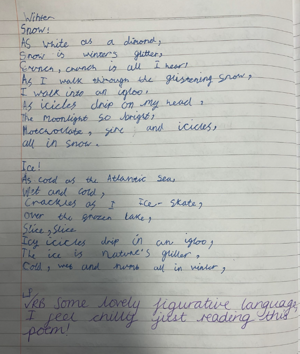 Winter
Snow!
As white as a dimond,
Snow is winter's glitter,
Crunch, crunch is all I hear,
As I walk through the glistening snow,
I walk into an igloo,
As icicles drip on my head,
The moonlight so bright,
Hotchocolate, fire, and icicles,
all in snow.
Ice!
As cold as the Atlantic Sea,
Wet and cold,
Crackles as I Ice-skate,
Over the frozen lake,
Slice, slice
Icy icicles drip in an igloo,
The ice is nature's glitter,
Cold, wet and numb all in winter,
VRB Some lovely figurative language,
I feel chilly just reading this
poem!